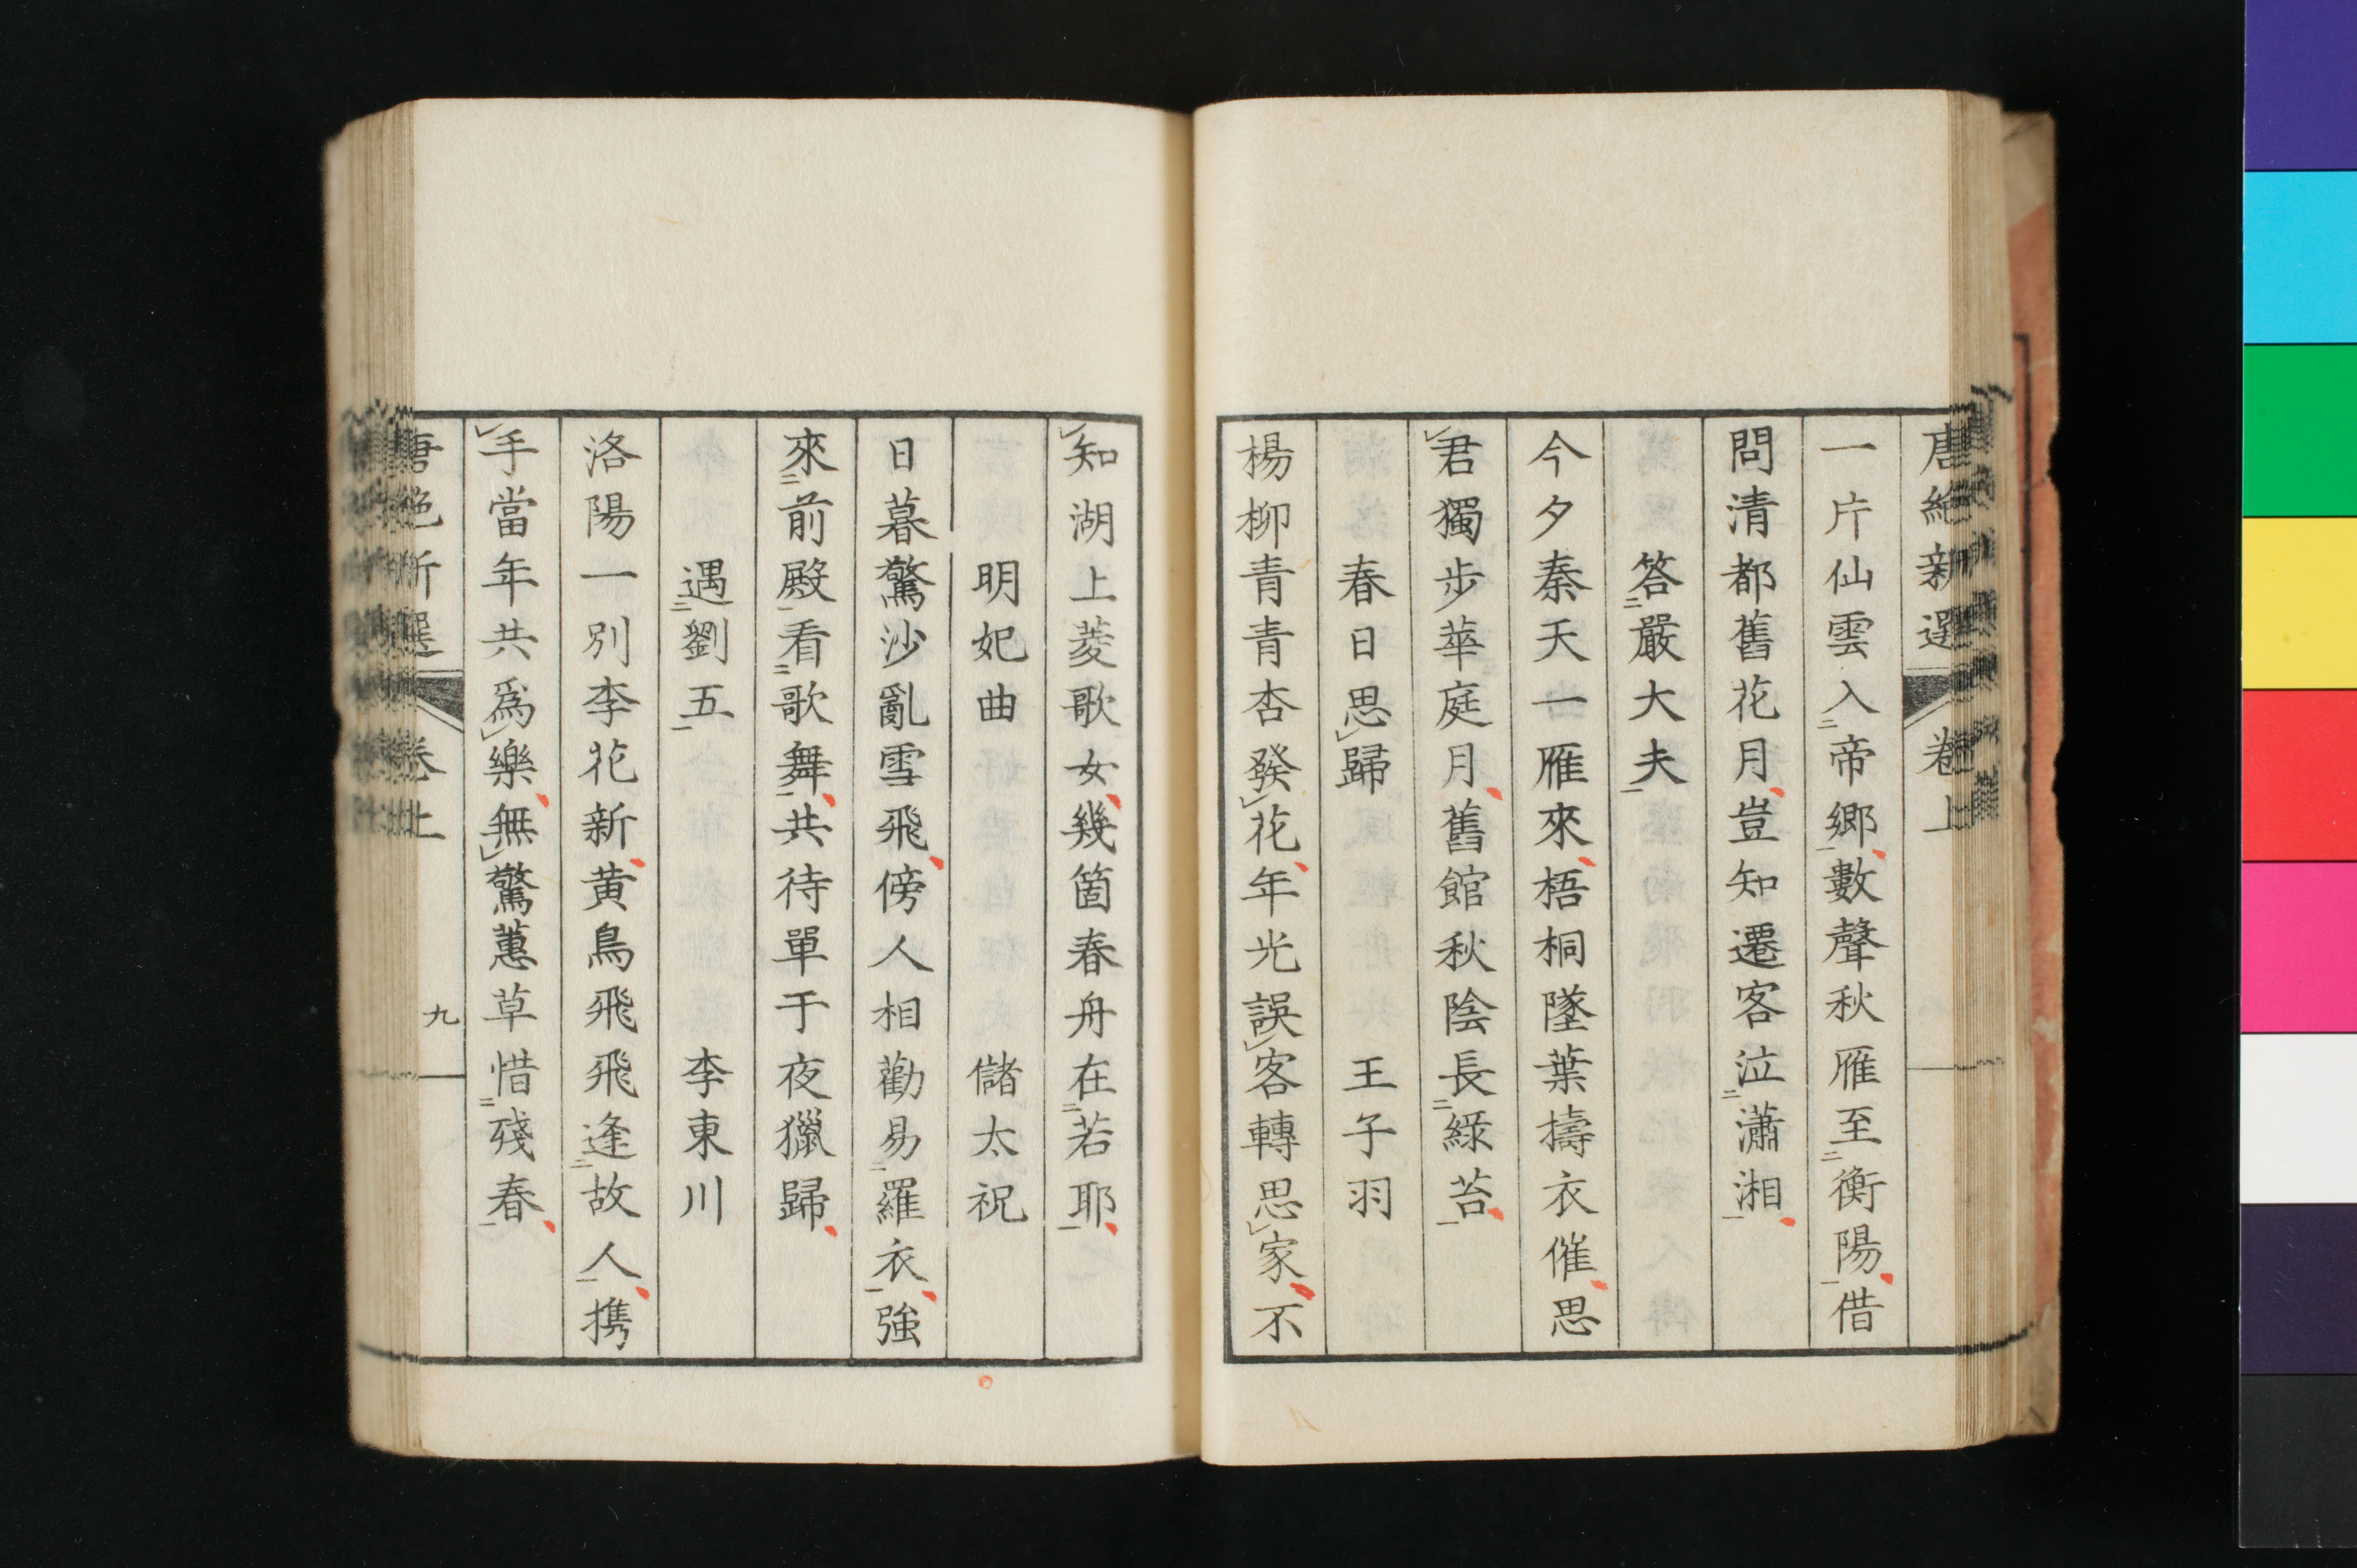 唐絶新選 卷上
一片仙雲入帝鄉數聲秋雁至衡陽借
問清都舊花月豈知遷客泣瀟湘
答嚴大夫
今夕秦天一雁來梧桐墜葉擣衣催思
君獨步華庭月舊館秋陰長綠苔
春日思歸 王子羽
楊柳青青杏發花年光誤客轉思家不
知湖上菱歌女幾箇春舟在若耶
明妃曲 儲太祝
日暮驚沙亂雪飛傍人相勸易羅衣強
來前殿看歌舞共待單于夜獵歸
遇劉五 李東川
洛陽一別李花新黃鳥飛飛逢故人攜
手當年共為樂無驚蕙草惜殘春
唐絶新選 卷上 九